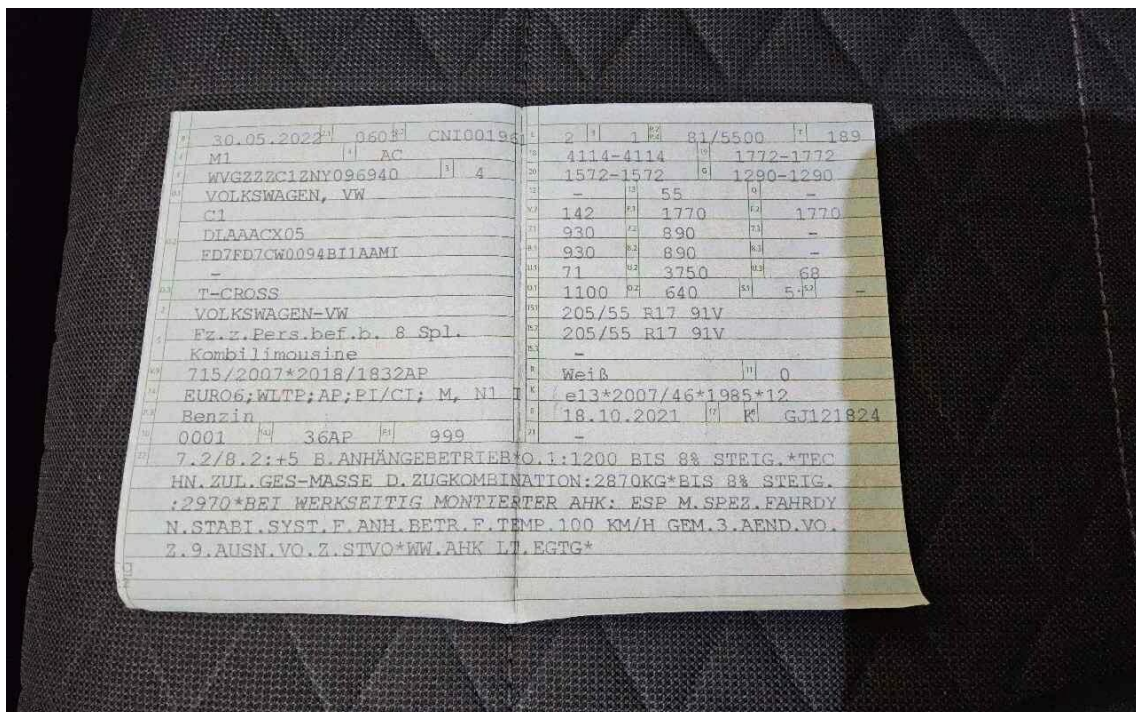 30.05.2022 0603 CNI001961
M1 AC
WVGZZZC1ZNY096940 4
VOLKSWAGEN, VW
C1
DLAAACX05
FD7FD7CW0094BI1AAMI
-
T-CROSS
VOLKSWAGEN-VW
Fz.z.Pers.bef.b. 8 Spl.
Kombilimousine
715/2007*2018/1832AP
EURO6;WLTP;AP;PI/CI; M, N1 I
Benzin
0001 36AP 999
2 1 81/5500 189
4114-4114 1772-1772
1572-1572 1290-1290
- 55 -
142 1770 1770
930 890 -
930 890 -
71 3750 68
1100 640 5 -
205/55 R17 91V
205/55 R17 91V
-
Weiß 0
e13*2007/46*1985*12
18.10.2021 K GJ121824
-
7.2/8.2:+5 B.ANHÄNGEBETRIEB*O.1:1200 BIS 8% STEIG.*TEC
HN.ZUL.GES-MASSE D.ZUGKOMBINATION:2870KG*BIS 8% STEIG.
:2970*BEI WERKSEITIG MONTIERTER AHK: ESP M.SPEZ.FAHRDY
N.STABI.SYST.F.ANH.BETR.F.TEMP.100 KM/H GEM.3.AEND.VO.
Z.9.AUSN.VO.Z.STVO*WW.AHK LT.EGTG*